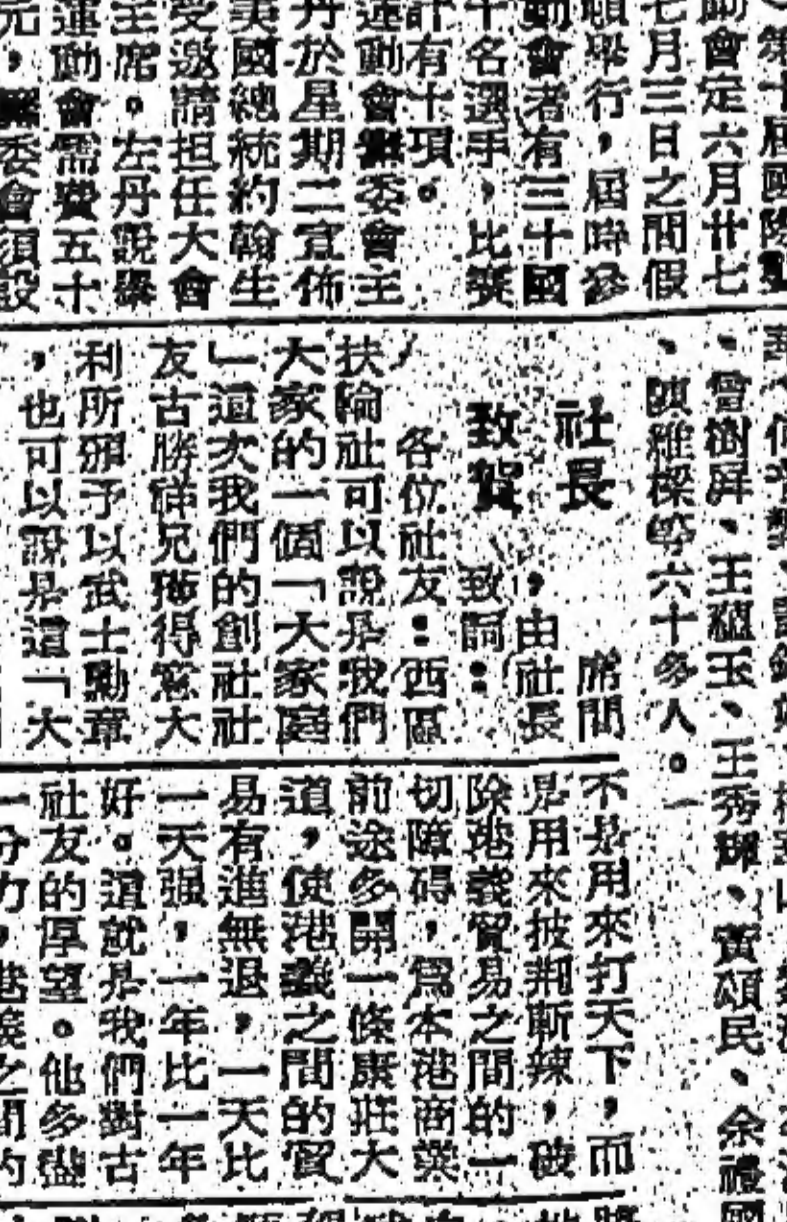 動會定六月廿七
七月三日之間假
頓舉行，屆時參
動會者有三十國
千名選手，比賽
計有十項。
運動會籌委會主
丹於星期二宣佈
美國總統約翰生
受邀請担任大會
主席。左丹說舉
運動會需費五十
元，籌委會須設
、曾樹屏、王蘊玉、王秀輝、黃頌民、余禮國
、陳維樑等六十多人。
社長
致賀
席間
，由社長
致詞：
各位社友：西區
扶輪社可以說是我們
大家的一個「大家庭
」這次我們的創社社
友古勝祥兄獲得意大
利所頒予以武士勳章
，也可以說是這「大
不是用來打天下，而
是用來披荆斬辣，破
除港義貿易之間的一
切障碍，爲本港商業
前途多開一條康莊大
道，使港義之間的貿
易有進無退，一天比
一天强，一年比一年
好。這就是我們對古
社友的厚望。他多盡
一分力，港義之間的